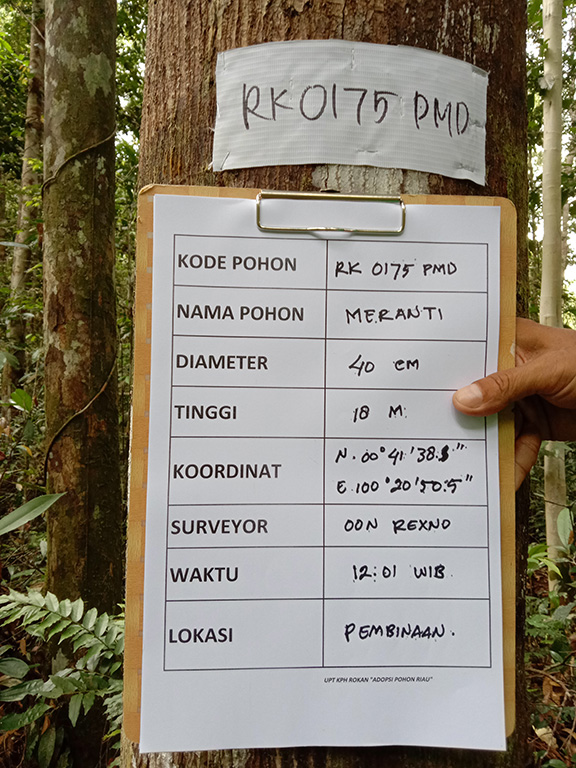 RK0175 PMD
KODE POHON RK 0175 PMD
NAMA POHON MERANTI
DIAMETER 40 cm
TINGGI 18 M.
KOORDINAT N. 00°41'38.5"
E.100°20'50.5"
SURVEYOR OON REXNO
WAKTU 12:01 WIB.
LOKASI PEMBINAAN.
UPT KPH ROKAN "ADOPSI POHON RIAU"